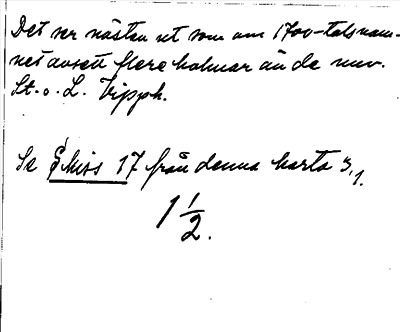 Det ser nästan ut som om 1700-talsnam-
net avsett flera holmar än de nuv.
St. o. L. Vipph.
Se Skiss 17 från denna karta 3,1.
1 1/2.